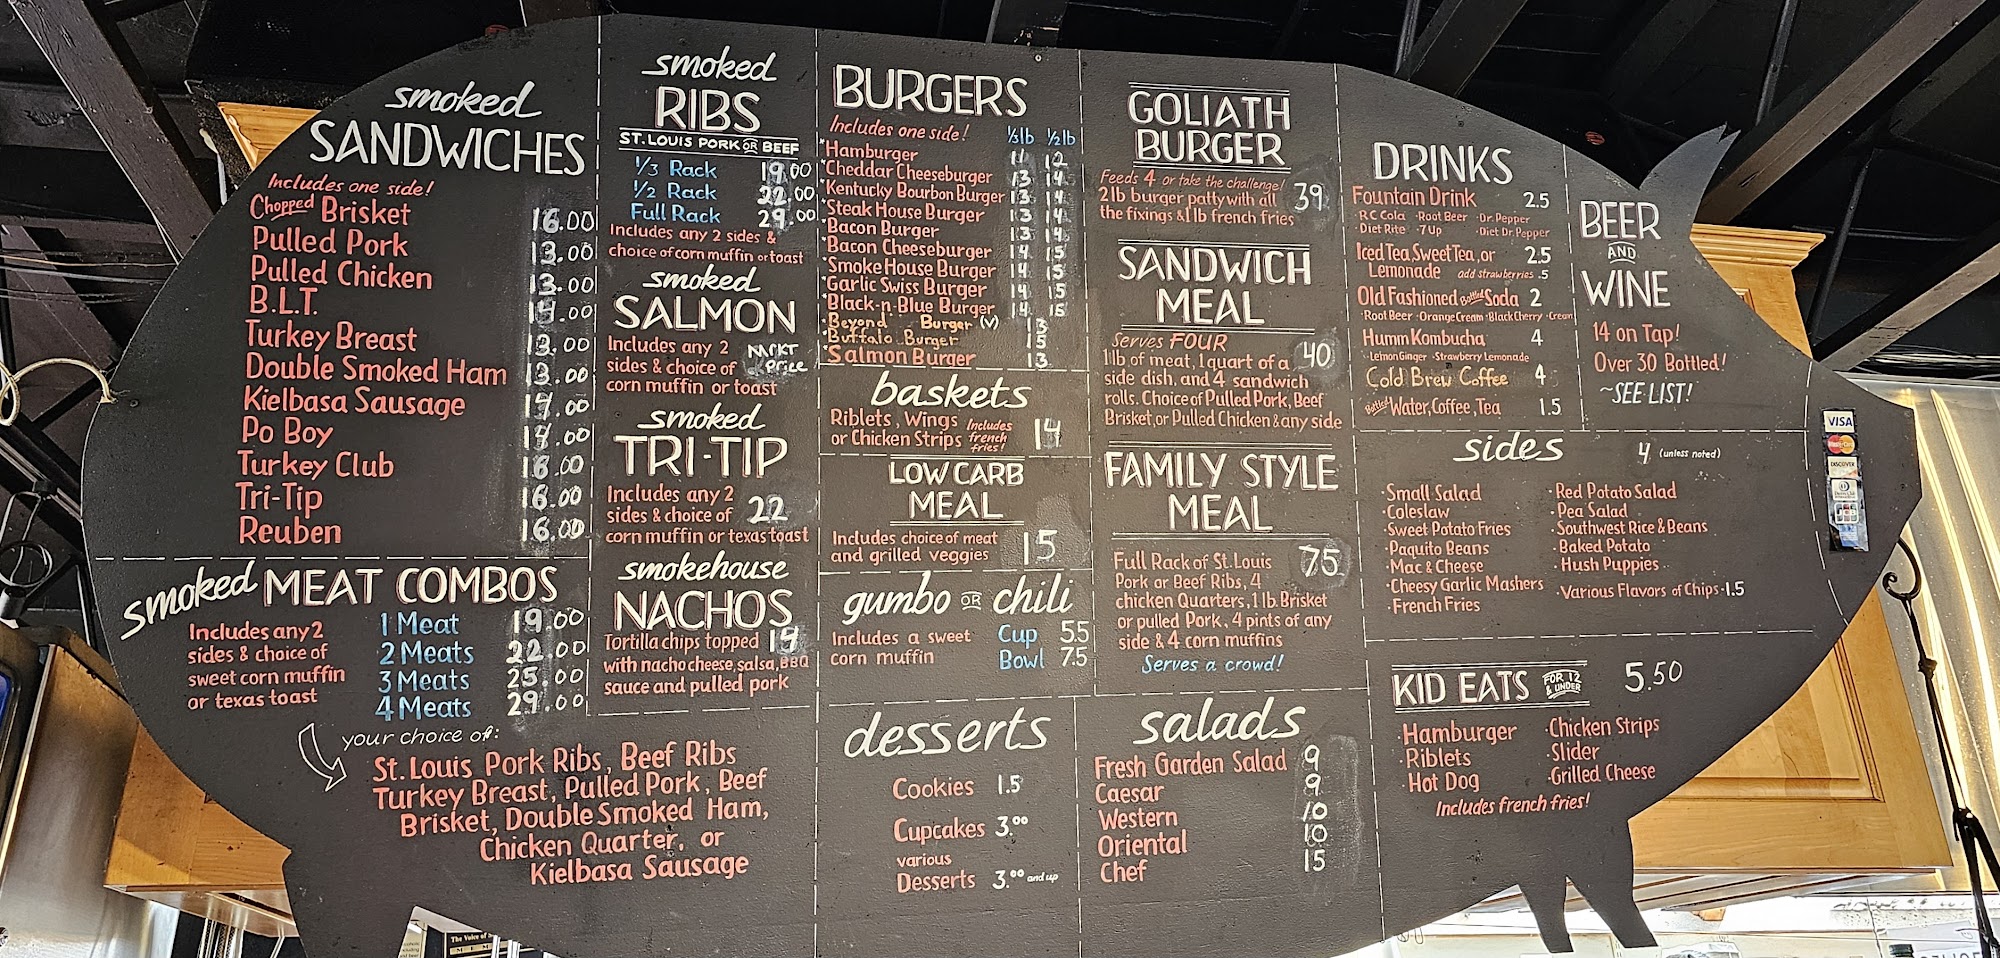 smoked
SANDWICHES
Includes one side!
Chopped Brisket 16.00
Pulled Pork 13.00
Pulled Chicken 13.00
B.L.T. 14.00
Turkey Breast 13.00
Double Smoked Ham 13.00
Kielbasa Sausage 14.00
Po Boy 14.00
Turkey Club 16.00
Tri-Tip 16.00
Reuben 16.00
smoked MEAT COMBOS
Includes any 2
sides & choice of
sweet corn muffin
or texas toast
1 Meat 19.00
2 Meats 22.00
3 Meats 25.00
4 Meats 29.00
your choice of:
St. Louis Pork Ribs, Beef Ribs
Turkey Breast, Pulled Pork, Beef
Brisket, Double Smoked Ham,
Chicken Quarter, or
Kielbasa Sausage
smoked
RIBS
ST. LOUIS PORK OR BEEF
1/3 Rack 19.00
1/2 Rack 22.00
Full Rack 29.00
Includes any 2 sides &
choice of corn muffin or toast
smoked
SALMON
Includes any 2
sides & choice of
corn muffin or toast
MRKT
Price
smoked
TRI-TIP
Includes any 2
sides & choice of 22
corn muffin or texas toast
smokehouse
NACHOS
Tortilla chips topped 14
with nacho cheese, salsa, BBQ
sauce and pulled pork
BURGERS
Includes one side! 1/3 lb 1/2 lb
Hamburger 11 12
Cheddar Cheeseburger 13 14
Kentucky Bourbon Burger 13 14
Steak House Burger 13 14
Bacon Burger 13 14
Bacon Cheeseburger 14 15
Smoke House Burger 14 15
Garlic Swiss Burger 14 15
Black-n-Blue Burger 14 15
Beyond Burger (V) 13
Buffalo Burger 15
Salmon Burger 13
baskets
Riblets, Wings
or Chicken Strips
Includes
french
fries!
14
LOW CARB
MEAL
Includes choice of meat
and grilled veggies
15
gumbo OR chili
Includes a sweet
corn muffin
Cup 5.5
Bowl 7.5
desserts
Cookies 1.5
Cupcakes 3.00
various
Desserts 3.00 and up
GOLIATH
BURGER
Feeds 4 or take the challenge!
2 lb burger patty with all
the fixings & 1 lb french fries
39
SANDWICH
MEAL
Serves FOUR
1 lb of meat, 1 quart of a
side dish, and 4 sandwich
rolls. Choice of Pulled Pork, Beef
Brisket, or Pulled Chicken & any side
40
FAMILY STYLE
MEAL
Full Rack of St. Louis
Pork or Beef Ribs, 4
chicken Quarters, 1 lb. Brisket
or pulled Pork, 4 pints of any
side & 4 corn muffins
75
Serves a crowd!
salads
Fresh Garden Salad 9
Caesar 9
Western 10
Oriental 10
Chef 15
DRINKS
Fountain Drink 2.5
·RC Cola ·Root Beer ·Dr. Pepper
·Diet Rite ·7 Up ·Diet Dr. Pepper
Iced Tea, Sweet Tea, or 2.5
Lemonade add strawberries .5
Old Fashioned Bottled Soda 2
·Root Beer ·Orange Cream ·Black Cherry ·Cream
Humm Kombucha 4
·Lemon Ginger ·Strawberry Lemonade
Cold Brew Coffee 4
Bottled Water, Coffee, Tea 1.5
BEER
AND
WINE
14 on Tap!
Over 30 Bottled!
~SEE LIST!
VISA
MasterCard
DISCOVER
JCB
sides 4 (unless noted)
·Small Salad
·Coleslaw
·Sweet Potato Fries
·Paquito Beans
·Mac & Cheese
·Cheesy Garlic Mashers
·French Fries
·Red Potato Salad
·Pea Salad
·Southwest Rice & Beans
·Baked Potato
·Hush Puppies
·Various Flavors of Chips ·1.5
KID EATS FOR 12 & UNDER 5.50
·Hamburger
·Riblets
·Hot Dog
·Chicken Strips
·Slider
·Grilled Cheese
Includes french fries!